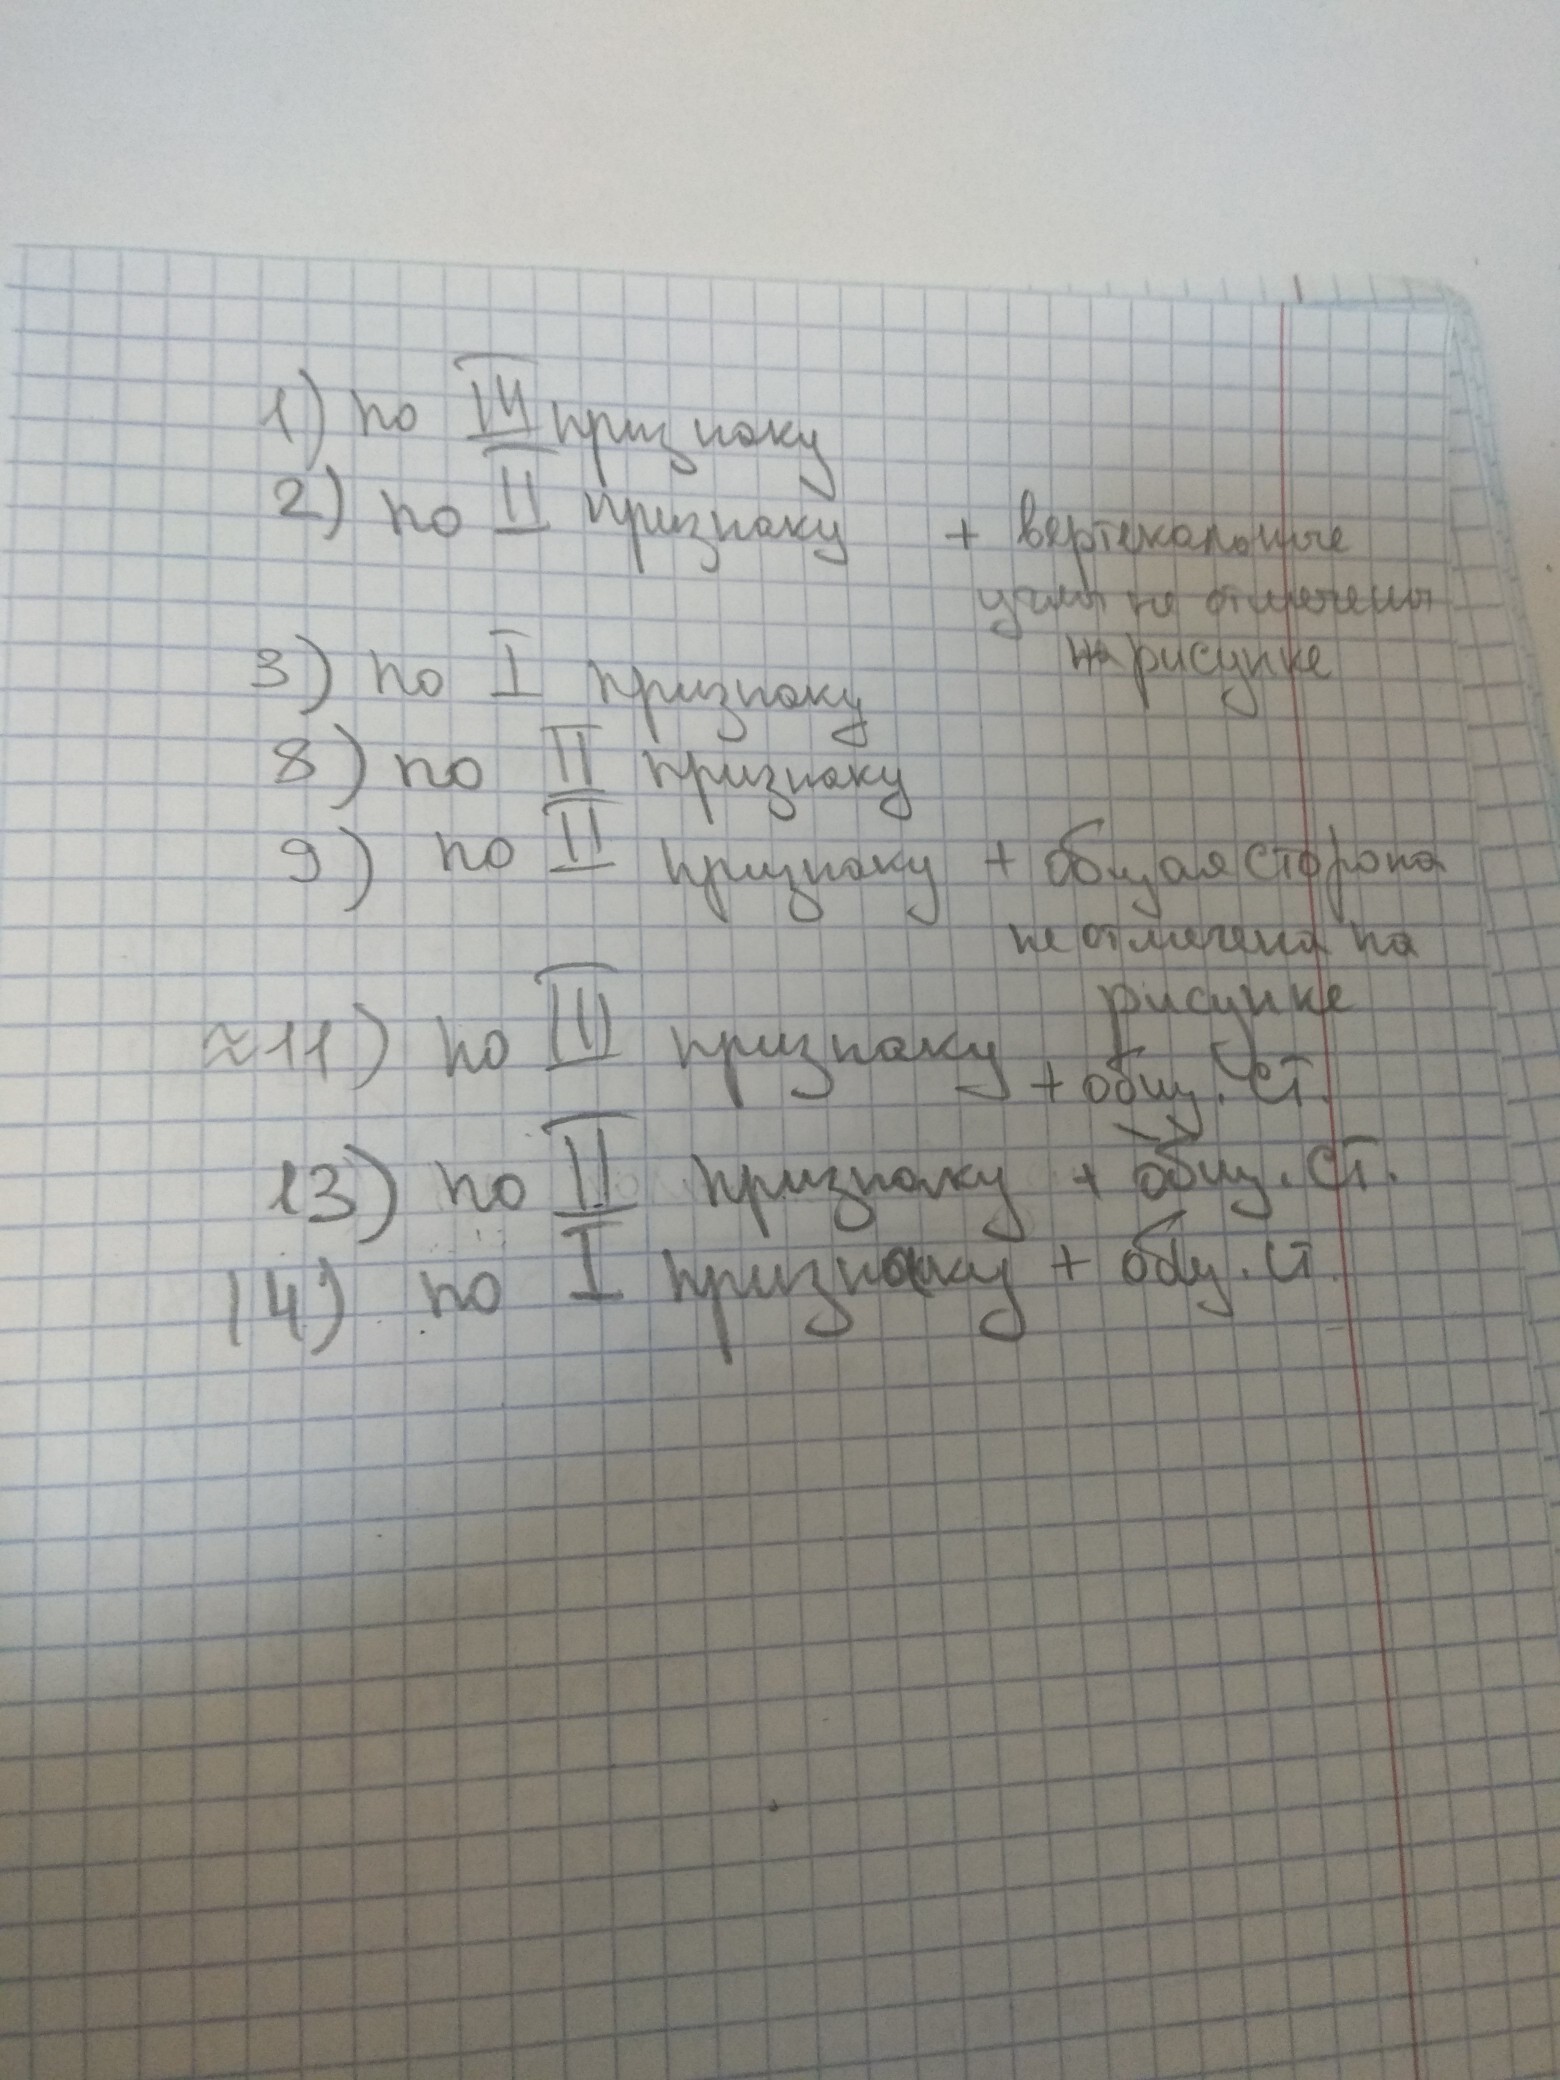 1) по III признаку
2) по II признаку + вертекальные
углы не отмечены
на рисунке
3) по I признаку
8) по II признаку
9) по II признаку + общая сторона
не отмечена на
рисунке
≈11) по III признаку
+ общ. ст.
13) по II признаку + общ. ст.
14) по I признаку + общ. ст.